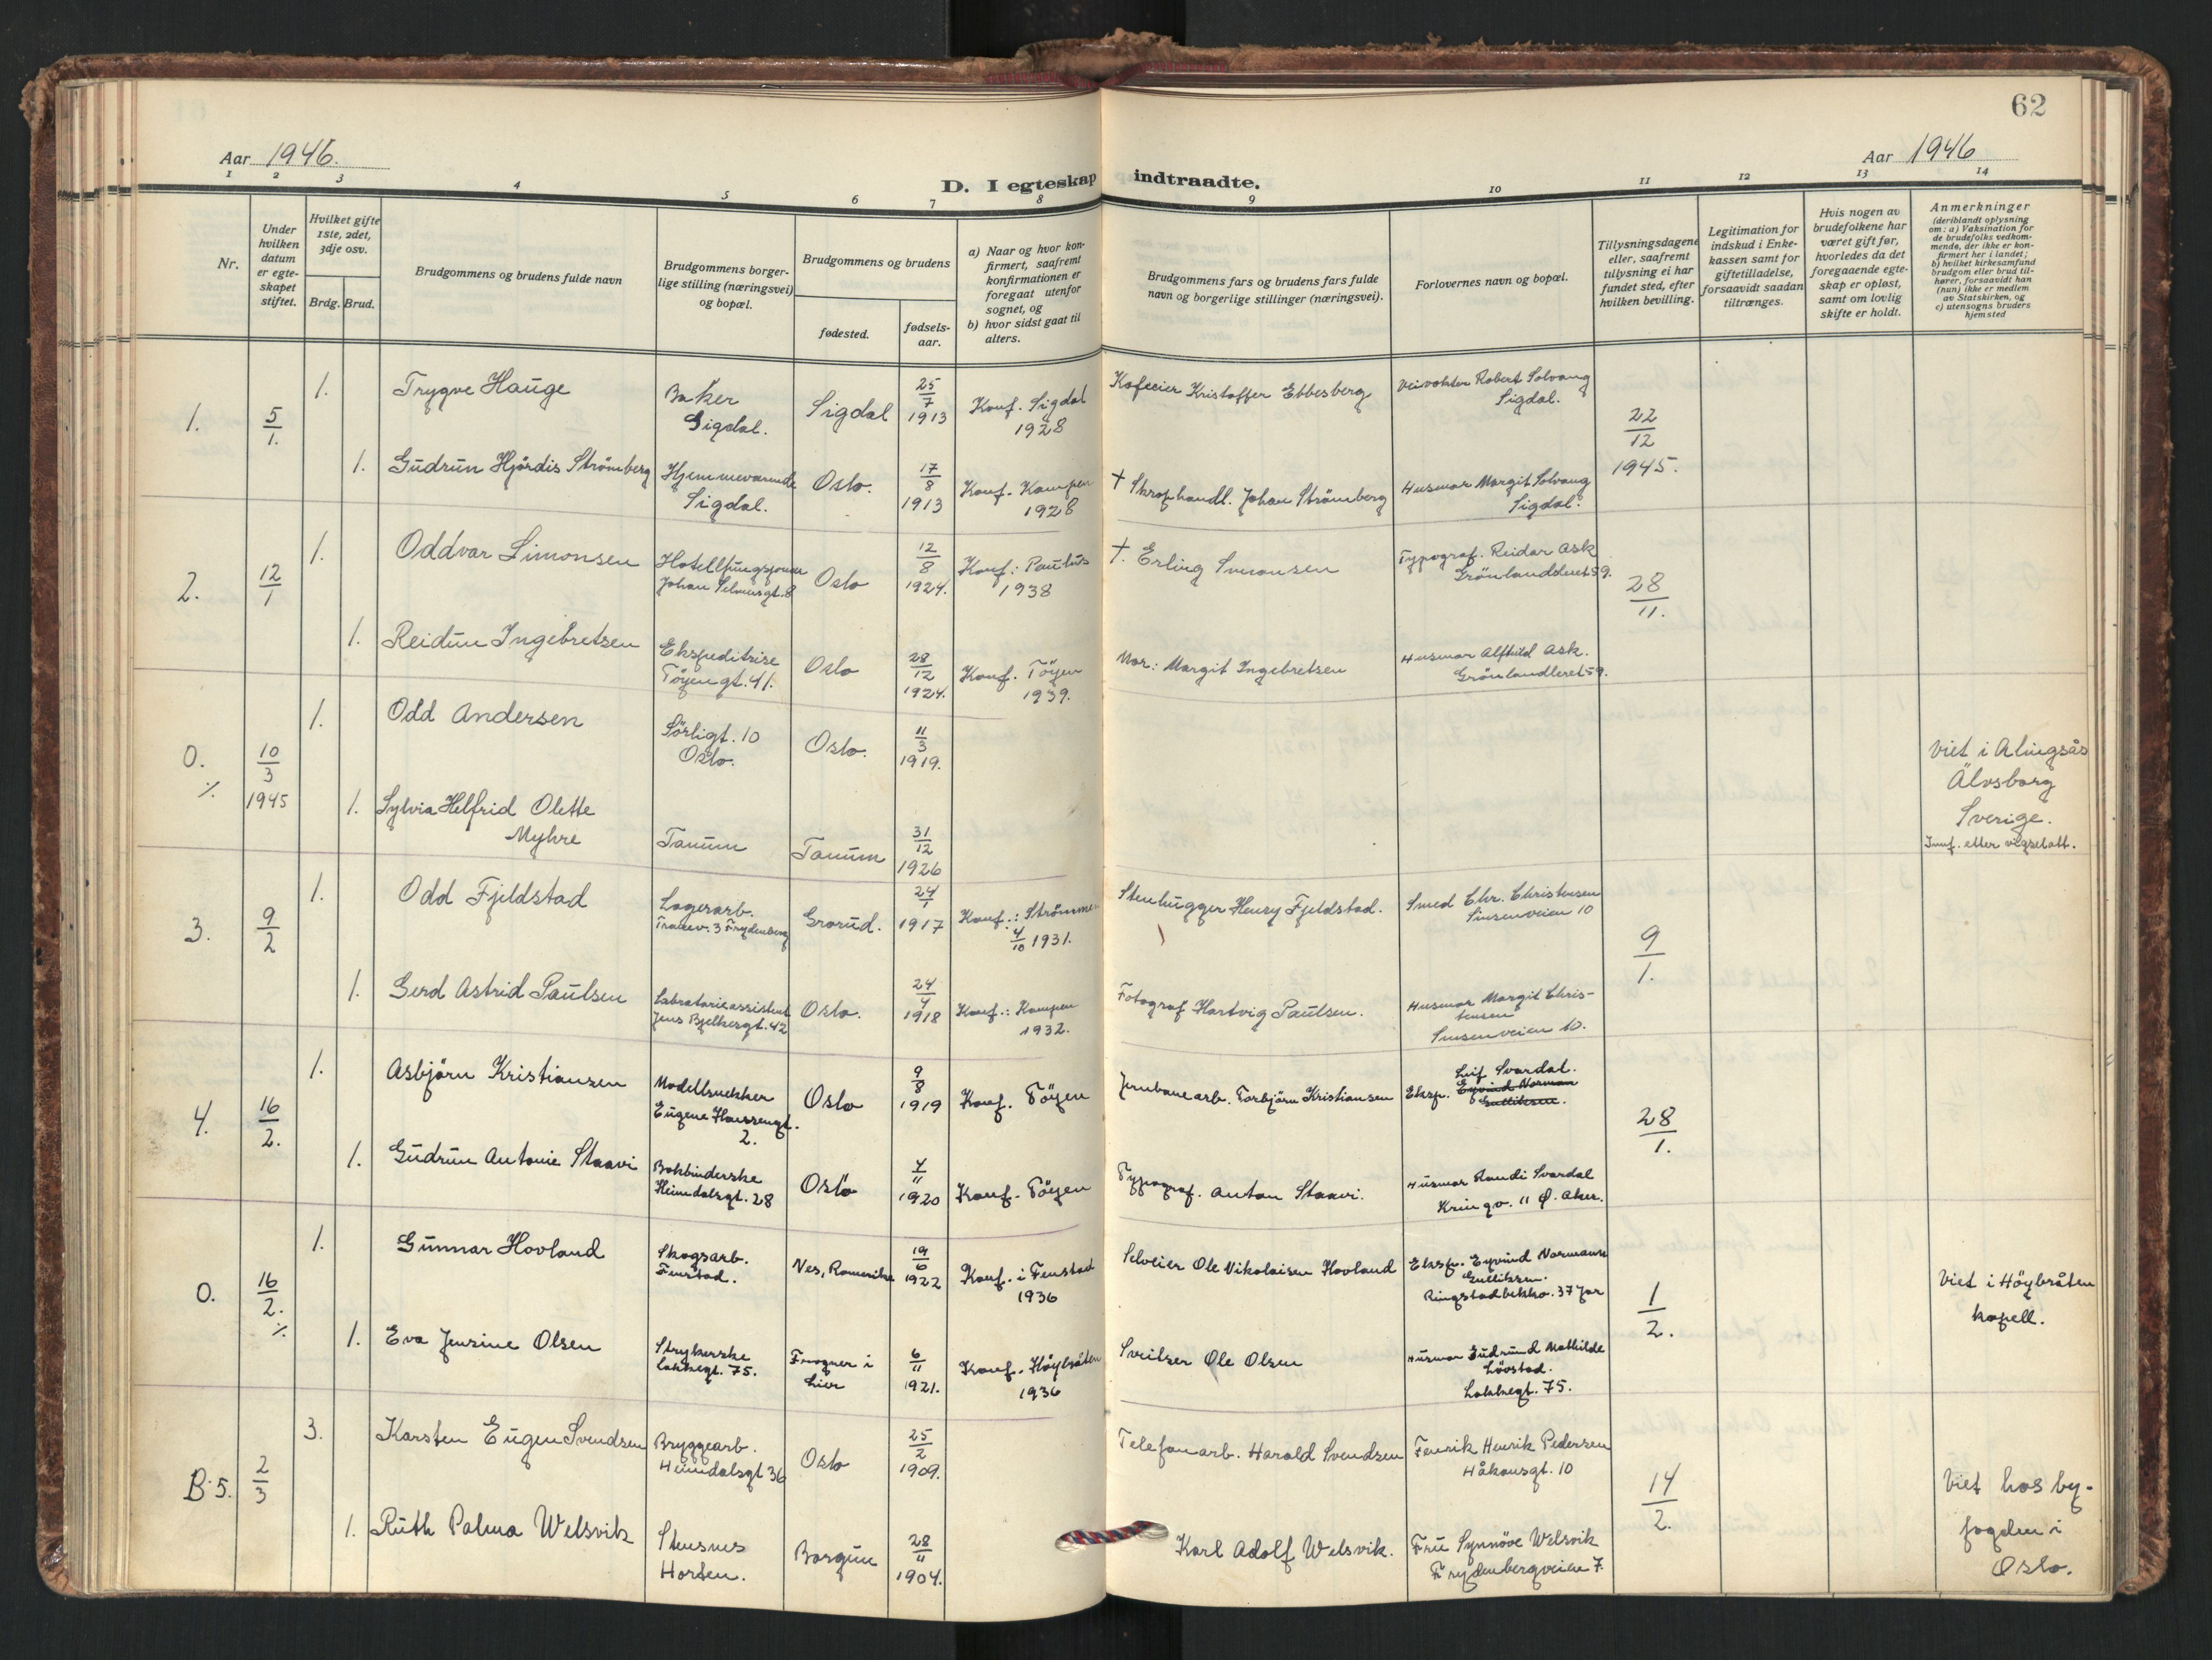 62
Aar 1946.
Aar 1946
D. I egteskap indtraadte.
1 2 3 4 5 6 7 8 9 10 11 12 13 14
Nr.
Under
hvilken
datum
er egte-
skapet
stiftet.
Hvilket gifte
1ste, 2det,
3dje osv.
Brdg. Brud.
Brudgommens og brudens fulde navn
Brudgommens borger-
lige stilling (næringsvei)
og bopæl.
Brudgommens og brudens
fødested.
fødsels-
aar.
a) Naar og hvor kon-
firmert, saafremt
konfirmationen er
foregaat utenfor
sognet, og
b) hvor sidst gaat til
alters.
Brudgommens fars og brudens fars fulde
navn og borgerlige stillinger (næringsvei).
Forlovernes navn og bopæl.
Tillysningsdagene
eller, saafremt
tillysning ei har
fundet sted, efter
hvilken bevilling.
Legitimation for
indskud i Enke-
kassen samt for
giftetilladelse,
forsaavidt saadan
tiltrænges.
Hvis nogen av
brudefolkene har
været gift før,
hvorledes da det
foregaaende egte-
skap er opløst,
samt om lovlig
skifte er holdt.
Anmerkninger
(deriblandt oplysning
om: a) Vaksination for
de brudefolks vedkom-
mende, der ikke er kon-
firmert her i landet;
b) hvilket kirkesamfund
brudgom eller brud til-
hører, forsaavidt han
(hun) ikke er medlem
av Statskirken, og
c) utensogns bruders
hjemsted
1. 5/1. 1. Trygve Hauge
Baker
Sigdal.
Sigdal
25/7
1913
Konf. Sigdal
1928
Kafeeier Kristoffer Ebbesberg
Veivokter Robert Solvang
Sigdal.
22/12
1945.
1. Gudrun Hjørdis Strømberg
Hjemmeværende
Sigdal.
Oslo.
17/8
1913
Konf. Kampen
1928
† Skraphandl. Johan Strømberg
Husmor Margit Solvang
Sigdal.
2. 12/1 1. Oddvar Simonsen
Johan Selmersgt. 8
Oslo
12/8
1924.
Konf: Paulus
1938
†. Erling Simonsen
Typograf. Reidar Ask
Grønlandsleret 59.
28/11.
1. Reidun Ingebretsen
Ekspeditrise
Tøyengt. 41.
Oslo
28/12
1924.
Konf. Tøyen
1939.
Mor: Margit Ingebretsen
Husmor Alfhild Ask.
Grønlandleret 59.
0. ./. 10/3
1945
1. Odd Andersen
Sørligt. 10
Oslo.
Oslo.
11/3
1919.
Viet i Alingsås
Älvsborg
Sverige.
Innf. etter vigselatt.
1. Sylvia Helfrid Olette
Myhre
Tanum
Tanum
31/12
1926
3. 9/2 1. Odd Fjeldstad
Lagerarb.
Tracev. 3 Frydenberg
Grorud.
24/1
1917
Konf.: Strømmen
4/10 1931.
Stenhugger Henry Fjeldstad.
Smed Chr. Christensen
Sinsenveien 10
9/1.
1. Gerd Astrid Paulsen
Labratorieassistent
Jens Bjelkesgt. 42
Oslo.
24/4
1918
Konf.: Kampen
1932.
Fotograf Hartvig Paulsen.
Husmor Margit Chris-
tensen
Sinsenveien 10.
4. 16/2. 1. Asbjørn Kristiansen
Modellsnekker
Eugene Hanssengt.
2.
Oslo
9/8
1919
Konf. Tøyen
Jernbanearb. Torbjørn Kristiansen
Leif Svardal.
Eksp. Eyvind Norman
Gulliksen.
28/1.
1. Gudrun Antonie Staavi
Bokbinderske
Heimdalsgt. 28
Oslo
4/11
1920
Konf. Tøyen
Typograf. Anton Staavi.
Husmor Randi Svardal
Kringv. 11 Ø. Aker.
0. 16/2. ./. 1. Gunnar Hovland
Skogsarb.
Fenstad.
Ves, Romerike
19/6
1922
Konf. i Fenstad
1936
Selveier Ole Nikolaisen Hovland
Eksp. Eyvind Normann
Gulliksen.
Ringstadbekkv. 37 Jar
1/2.
Viet i Høybråten
kapell.
1. Eva Jensine Olsen
Strykerske
Lakkegt. 75.
Frogner i
Lier
6/11
1921.
Konf. Høybråten
1936
Sveitser Ole Olsen
Husmor Gudrund Mathilde
Løvstad.
Lakkegt. 75.
B. 5. 2/3 3. Karsten Eugen Svendsen
Bryggearb.
Heimdalsgt 36
Oslo
25/2
1909.
Telefonarb. Harald Svendsen
Fenrik Henrik Pedersen
Håkonsgt. 10
14/2.
Viet hos by-
fogden i
Oslo.
1. Ruth Palma Welsvik
Stensnes
Horten.
Borgun
28/11
1904.
Karl Adolf Welsvik.
Fru Synnøve Welsvik
Frydenbergveien 7.